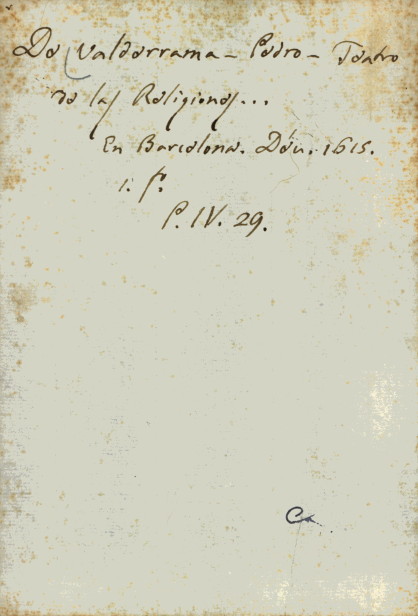 De Valderrama - Pedro - Teatro
de las Religiones...
En Barcelona. Déu. 1615.
1. fº.
P. IV. 29.